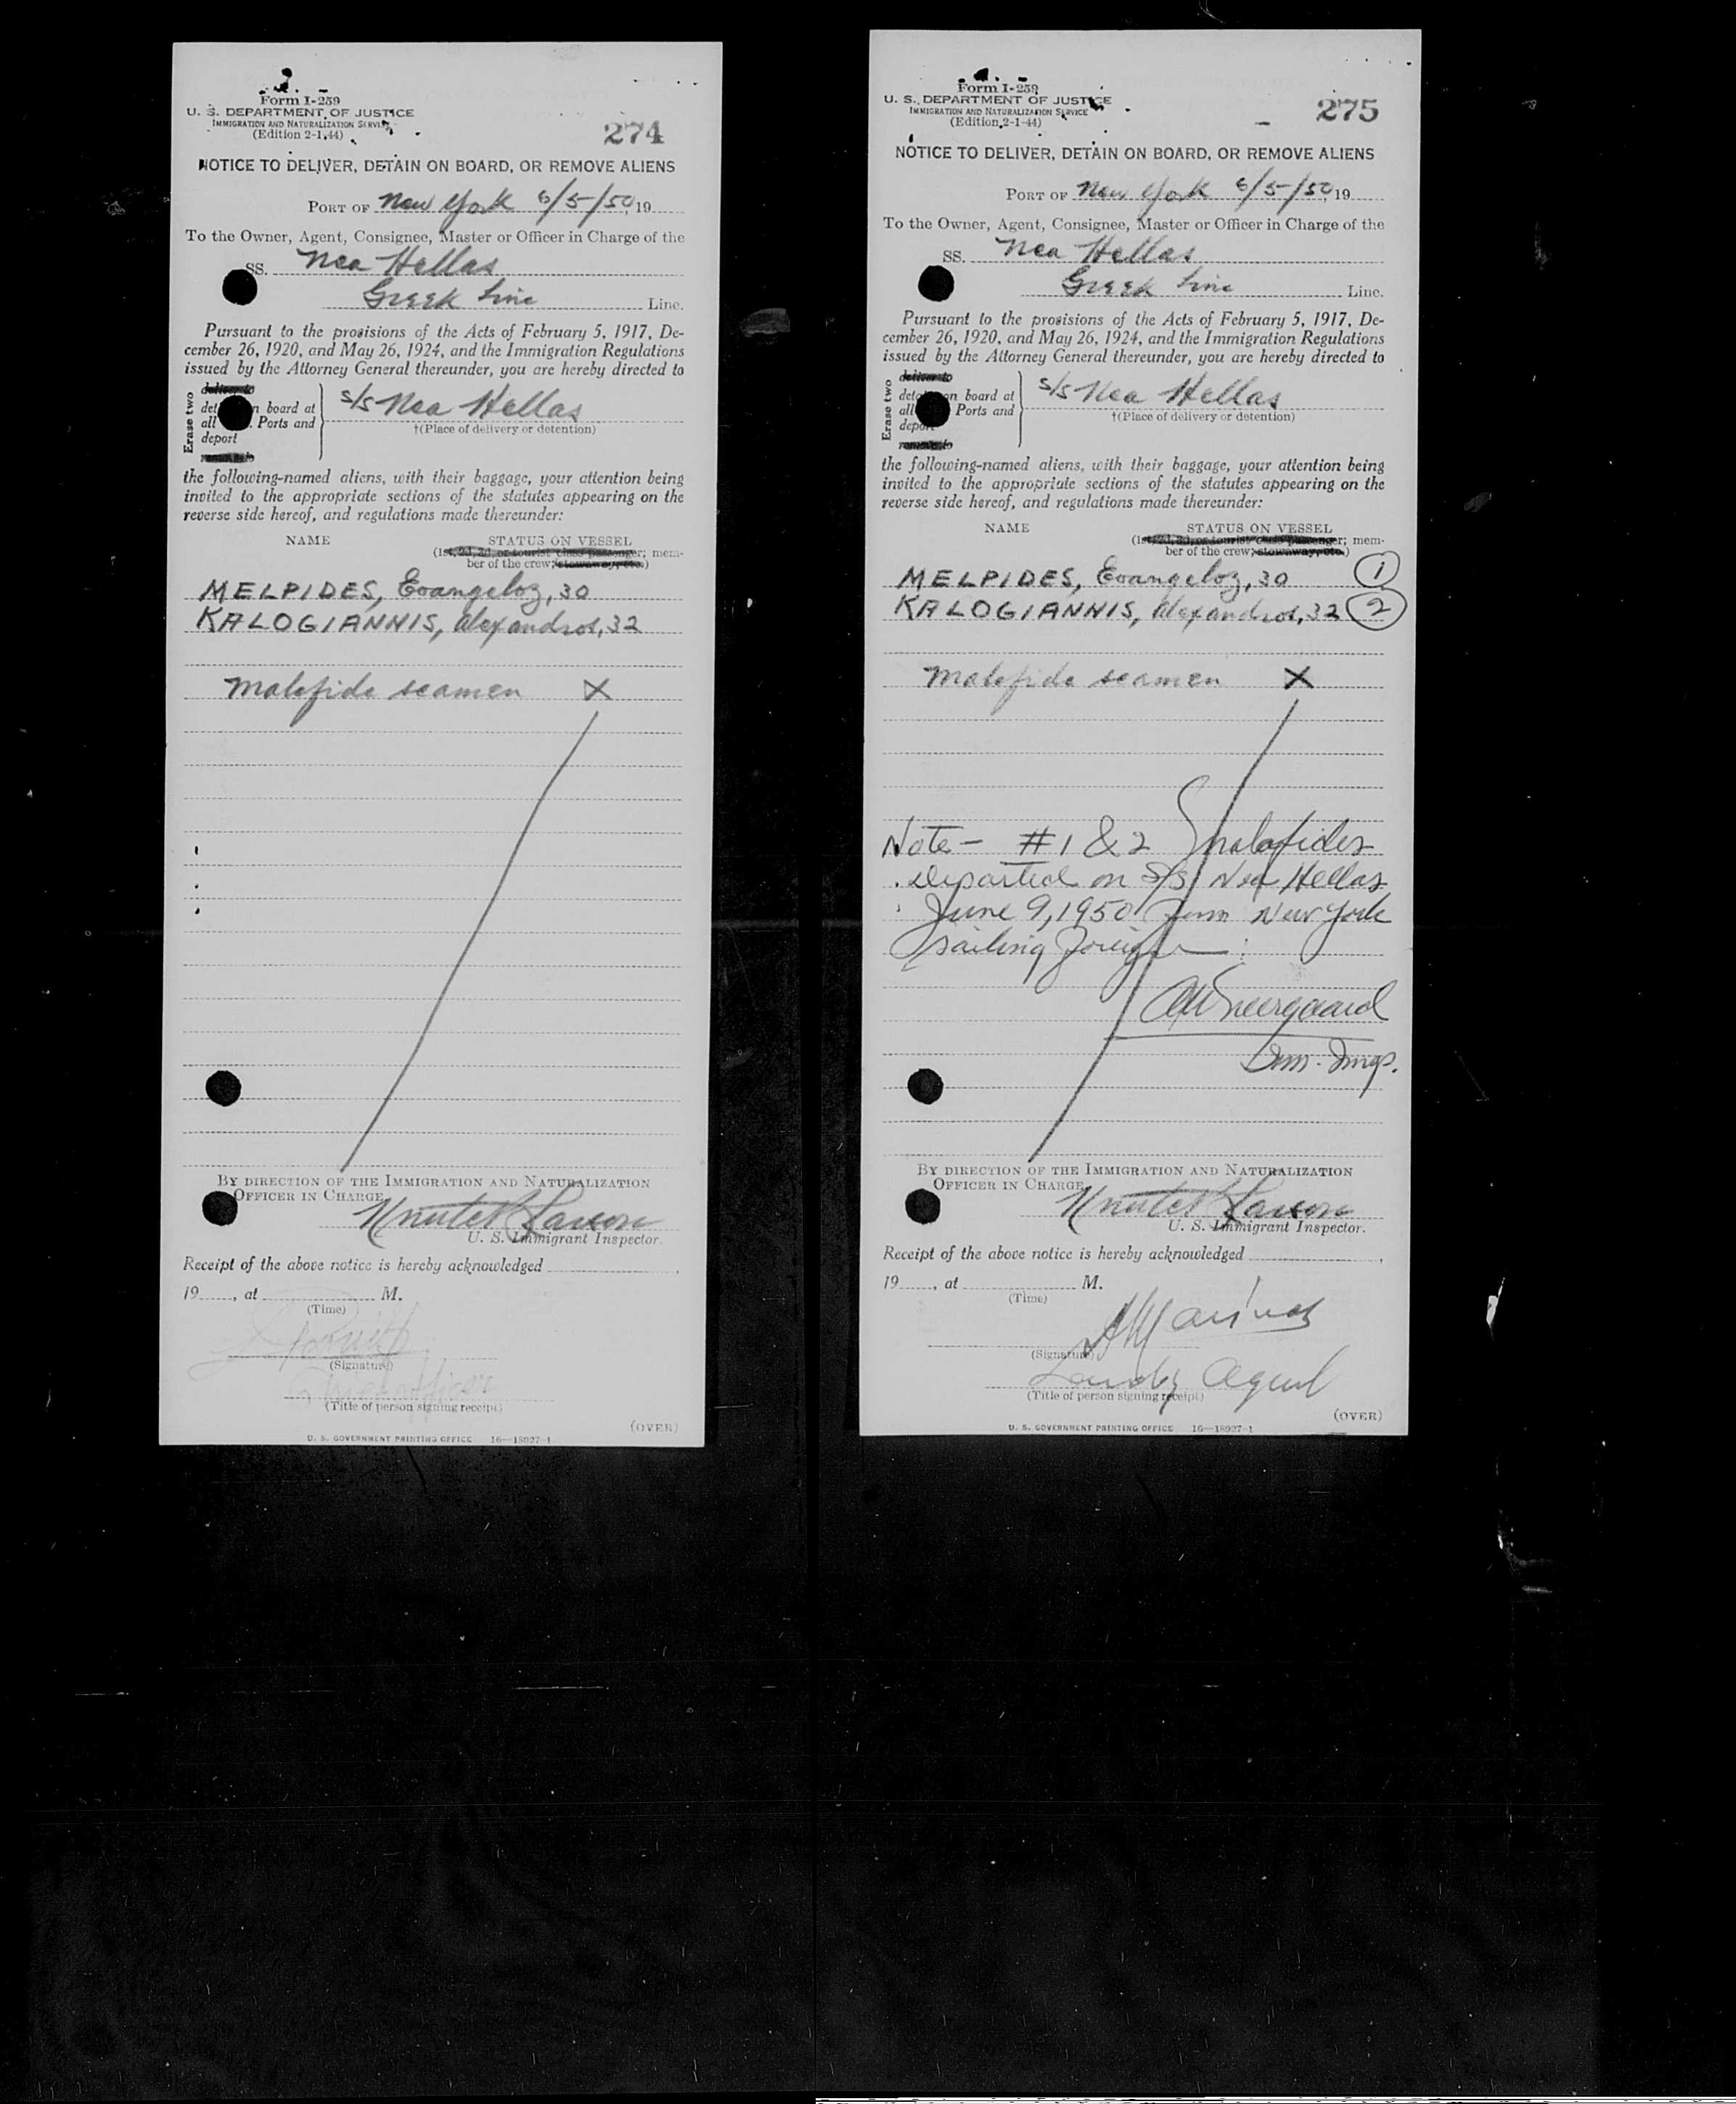 Form I-259
U. S. DEPARTMENT OF JUSTICE
IMMIGRATION AND NATURALIZATION SERVICE
(Edition 2-1-44)
274
NOTICE TO DELIVER, DETAIN ON BOARD, OR REMOVE ALIENS
PORT OF New York 6/5/50, 19
To the Owner, Agent, Consignee, Master or Officer in Charge of the
SS. Nea Hellas
Greek Line Line.
Pursuant to the provisions of the Acts of February 5, 1917, De-
cember 26, 1920, and May 26, 1924, and the Immigration Regulations
issued by the Attorney General thereunder, you are hereby directed to
Erase two
deliver to
board at
all Ports and
deport
s/s Nea Hellas
†(Place of delivery or detention)
the following-named aliens, with their baggage, your attention being
invited to the appropriate sections of the statutes appearing on the
reverse side hereof, and regulations made thereunder:
NAME STATUS ON VESSEL
(1st, 2d, 3d, or tourist class passenger; mem-
ber of the crew; stowaway, etc.)
MELPIDES, Evangelos, 30
KALOGIANNIS, Alexandros, 32
Malafide seamen X
BY DIRECTION OF THE IMMIGRATION AND NATURALIZATION
OFFICER IN CHARGE
U. S. Immigrant Inspector.
Receipt of the above notice is hereby acknowledged
19, at M.
(Time)
(Signature)
Chief officer
(Title of person signing receipt)
(OVER)
U. S. GOVERNMENT PRINTING OFFICE 16—18927-1
Form I-259
U. S. DEPARTMENT OF JUSTICE
IMMIGRATION AND NATURALIZATION SERVICE
(Edition 2-1-44)
275
NOTICE TO DELIVER, DETAIN ON BOARD, OR REMOVE ALIENS
PORT OF New York 6/5/50, 19
To the Owner, Agent, Consignee, Master or Officer in Charge of the
SS. Nea Hellas
Greek Line Line.
Pursuant to the provisions of the Acts of February 5, 1917, De-
cember 26, 1920, and May 26, 1924, and the Immigration Regulations
issued by the Attorney General thereunder, you are hereby directed to
Erase two
deliver to
on board at
all Ports and
deport
s/s Nea Hellas
†(Place of delivery or detention)
the following-named aliens, with their baggage, your attention being
invited to the appropriate sections of the statutes appearing on the
reverse side hereof, and regulations made thereunder:
NAME STATUS ON VESSEL
(1st, 2d, 3d, or tourist class passenger; mem-
ber of the crew; stowaway, etc.)
MELPIDES, Evangelos, 30 1
KALOGIANNIS, Alexandros, 32 2
Malafide seamen X
Note - #1 & 2 malafides
departed on S/S Nea Hellas
June 9, 1950 from New York
sailing foreign
Imm. Insp.
BY DIRECTION OF THE IMMIGRATION AND NATURALIZATION
OFFICER IN CHARGE
U. S. Immigrant Inspector.
Receipt of the above notice is hereby acknowledged
19, at M.
(Time)
(Signature)
(Title of person signing receipt)
(OVER)
U. S. GOVERNMENT PRINTING OFFICE 16—18927-1